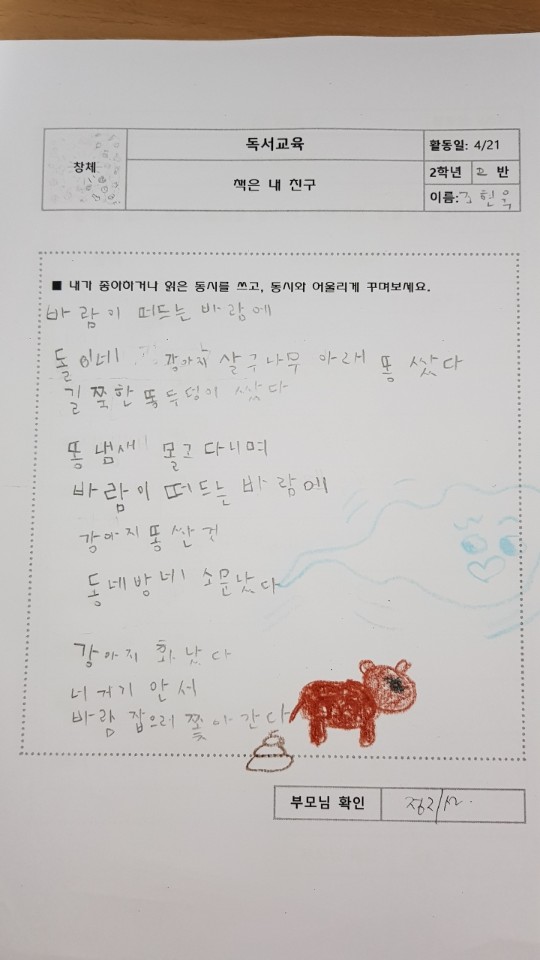 창체
독서교육
책은 내 친구
활동일: 4/21
2학년 2 반
이름: 조현욱
■ 내가 좋아하거나 읽은 동시를 쓰고, 동시와 어울리게 꾸며보세요.
바람이 떠드는 바람에
돌이네 강아지 살구나무 아래 똥 쌌다
길쭉한 똥 두덩이 쌌다
똥 냄새 몰고 다니며
바람이 떠드는 바람에
강아지 똥 싼 것
동네방네 소문났다
강아지 화났다
너 거기 안 서
바람 잡으러 쫓아간다
부모님 확인